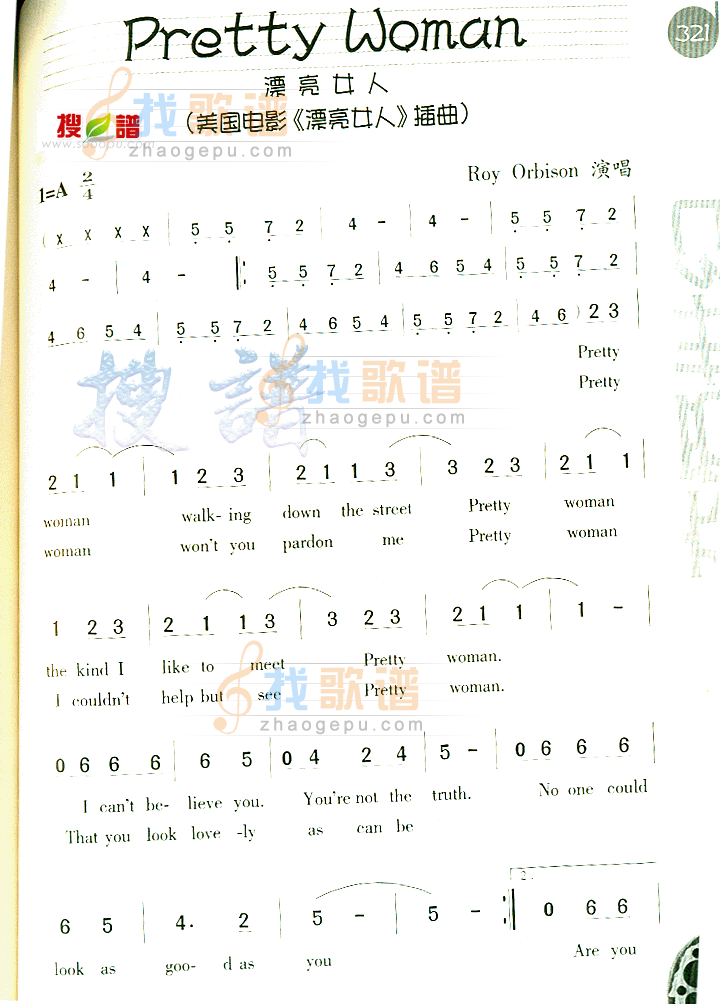 Pretty Woman
321
漂亮女人
搜谱
www.sooopu.com
(美国电影《漂亮女人》插曲)
找歌谱
zhaogepu.com
1=A 2/4
Roy Orbison 演唱
( x x x x | 5 5 7 2 | 4 - | 4 - | 5 5 7 2
4 - | 4 - |: 5 5 7 2 | 4 6 5 4 | 5 5 7 2
4 6 5 4 | 5 5 7 2 | 4 6 5 4 | 5 5 7 2 | 4 6 ) 2 3
搜谱
找歌谱
zhaogepu.com
Pretty
Pretty
2 1 1 | 1 2 3 | 2 1 1 3 | 3 2 3 | 2 1 1
woman walk- ing down the street Pretty woman
woman won't you pardon me Pretty woman
1 2 3 | 2 1 1 3 | 3 2 3 | 2 1 1 | 1 - |
the kind I like to meet Pretty woman.
I couldn't help but see Pretty woman.
找歌谱
zhaogepu.com
0 6 6 6 | 6 5 | 0 4 2 4 | 5 - | 0 6 6 6
I can't be- lieve you. You're not the truth. No one could
That you look love -ly as can be
找歌谱
zhaogepu.com
6 5 | 4. 2 | 5 - | 5 - :| 2. 0 6 6
look as goo- d as you Are you